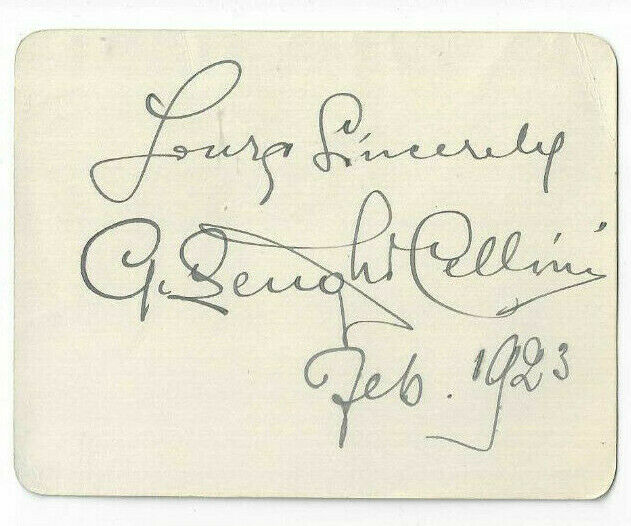 Yours Sincerely
G. Lenghi Cellini
Feb. 1923